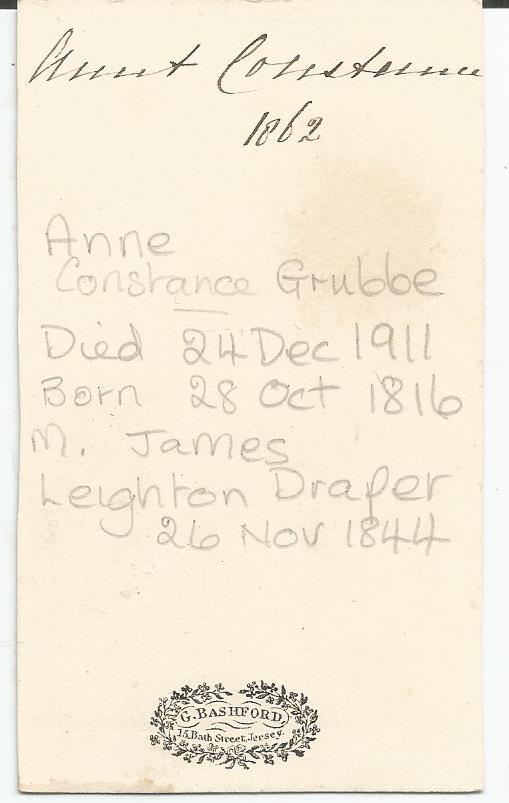 Aunt Constance
1862
Anne
Constance Grubbe
Died 24 Dec 1911
Born 28 Oct 1816
M. James
Leighton Draper
26 Nov 1844
G. BASHFORD,
15, Bath Street, Jersey.